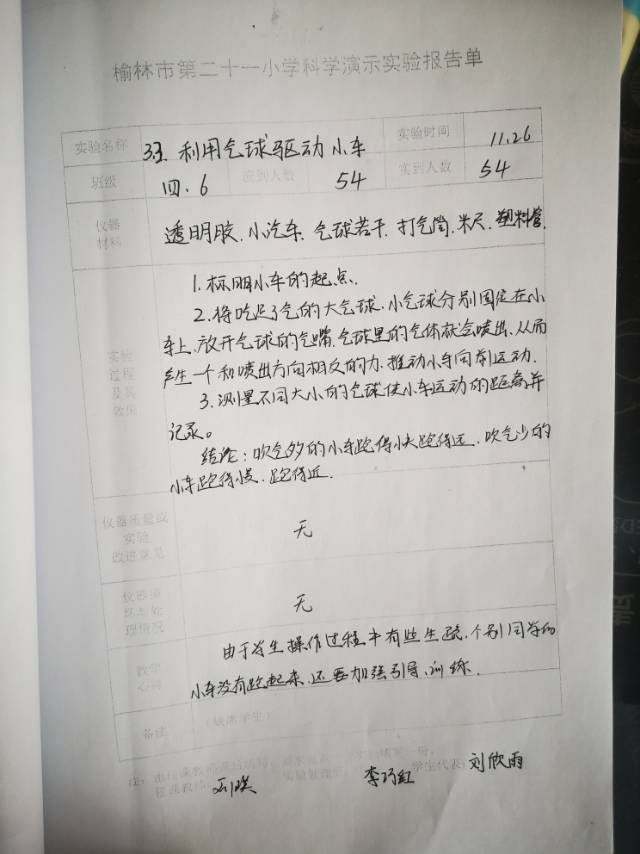 榆林市第二十一小学科学演示实验报告单
实验名称 3.3. 利用气球驱动小车 实验时间 11.26
班级 四.6 应到人数 54 实到人数 54
仪器
材料 透明胶. 小汽车. 气球若干. 打气筒. 米尺. 塑料管.
实验
过程
及其
效果
1. 标明小车的起点.
2. 将吹足了气的大气球. 小气球分别固定在小
车上. 放开气球的气嘴. 气球里的气体就会喷出. 从而
产生一个和喷出方向相反的力. 推动小车向前运动.
3. 测量不同大小的气球使小车运动的距离并
记录。
结论: 吹气多的小车跑得快跑得远. 吹气少的
小车跑得慢. 跑得近.
仪器质量或
实验
改进意见 无
仪器损
坏与处
理情况 无
教学
心得
由于学生操作过程中有些生疏. 个别同学的
小车没有跑起来. 还要加强引导. 训练.
备注 (缺席学生)
李巧红 学生代表: 刘欣雨